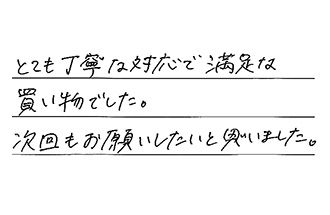 とても丁寧な対応で満足な
買い物でした。
次回もお願いしたいと思いました。